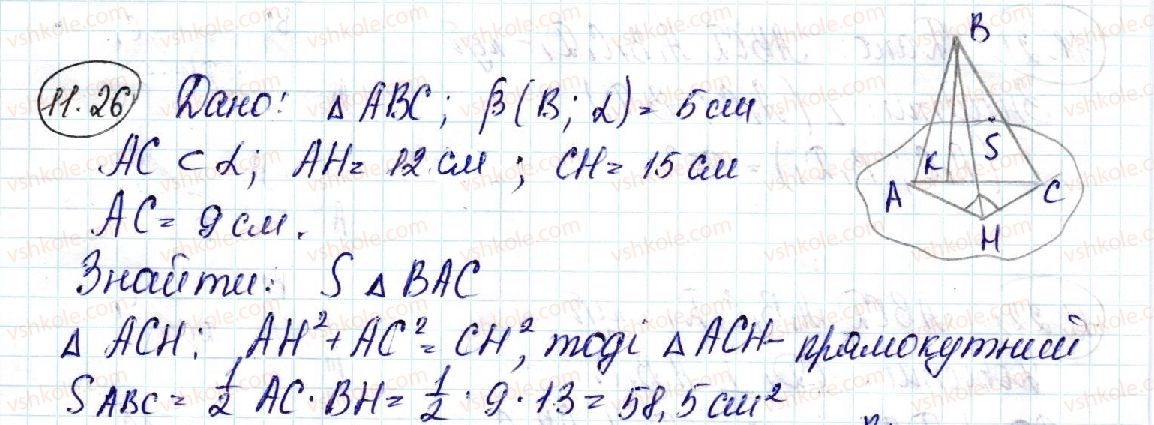 11.26 Дано: △ ABC; β(B; α) = 5 см
AC ⊂ α; AH = 12 см; CH = 15 см
AC = 9 см.
Знайти: S △ BAC
△ ACH: AH² + AC² = CH², тоді △ ACH - прямокутний
S ABC = 1/2 AC · BH = 1/2 · 9 · 13 = 58,5 см²
B
5
K
A
C
H
vshkole.com